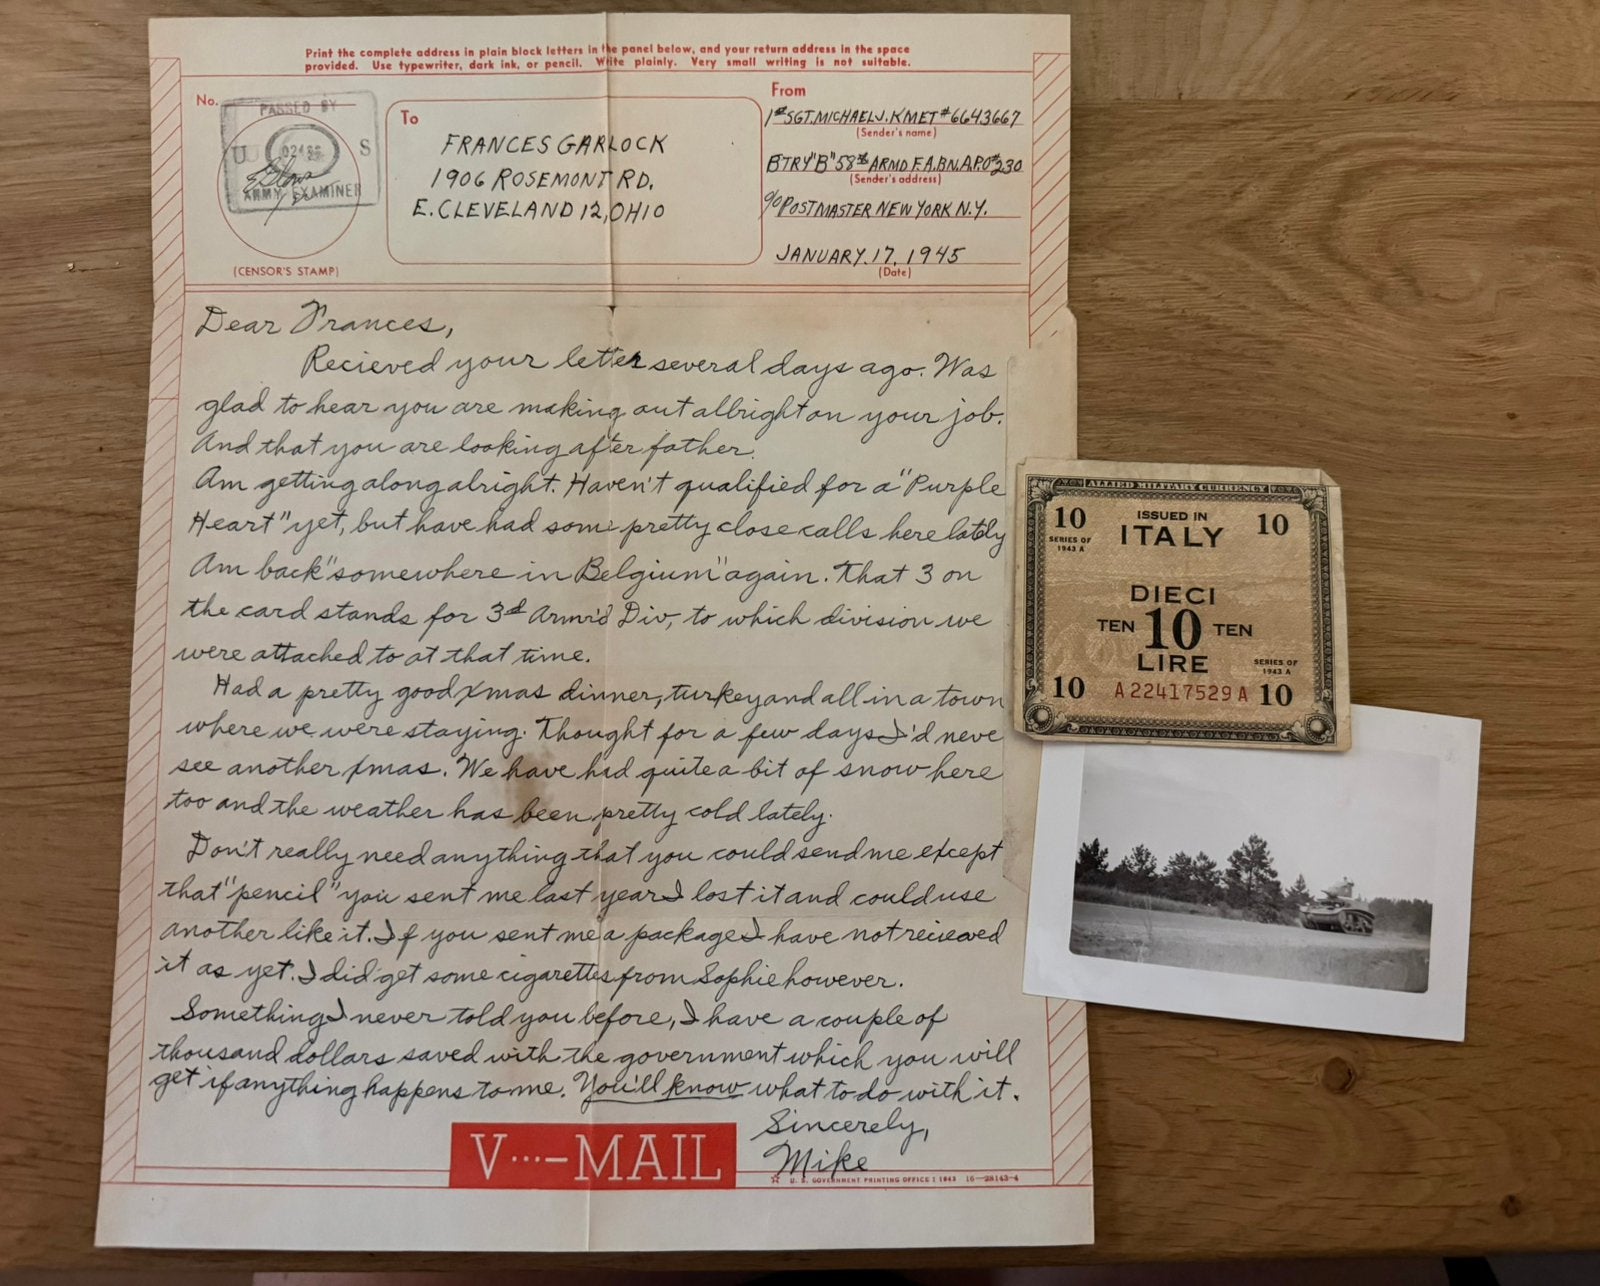 Print the complete address in plain block letters in the panel below, and your return address in the space
provided. Use typewriter, dark ink, or pencil. Write plainly. Very small writing is not suitable.
No.
PASSED BY
U S
ARMY EXAMINER
(CENSOR'S STAMP)
To
FRANCES GARLOCK
1906 ROSEMONT RD.
E. CLEVELAND 12, OHIO
From
1st SGT. MICHAEL J. KMET #6643667
(Sender's name)
BTRY "B" 58th ARMD F.A.BN. A.P.O. #230
(Sender's address)
% POSTMASTER NEW YORK N.Y.
JANUARY. 17, 1945
(Date)
Dear Frances,
Recieved your letter several days ago. Was
glad to hear you are making out allright on your job.
And that you are looking after father.
Am getting along alright. Haven't qualified for a "Purple
Heart" yet, but have had some pretty close calls here lately
Am back "somewhere in Belgium" again. That 3 on
the card stands for 3d Arm'd Div, to which division we
were attached to at that time.
Had a pretty good Xmas dinner, turkey and all in a town
where we were staying. Thought for a few days I'd neve
see another Xmas. We have had quite a bit of snow here
too and the weather has been pretty cold lately.
Don't really need anything that you could send me except
that "pencil" you sent me last year I lost it and could use
another like it. If you sent me a package I have not recieved
it as yet. I did get some cigarettes from Sophie however.
Something I never told you before, I have a couple of
thousand dollars saved with the government which you will
get if anything happens to me. You'll know what to do with it.
Sincerely,
Mike
V···—MAIL
U. S. GOVERNMENT PRINTING OFFICE : 1943 16—28143-4
ALLIED MILITARY CURRENCY
10 ISSUED IN 10
SERIES OF
1943 A
ITALY
DIECI
TEN 10 TEN
LIRE
SERIES OF
1943 A
10 A22417529A 10